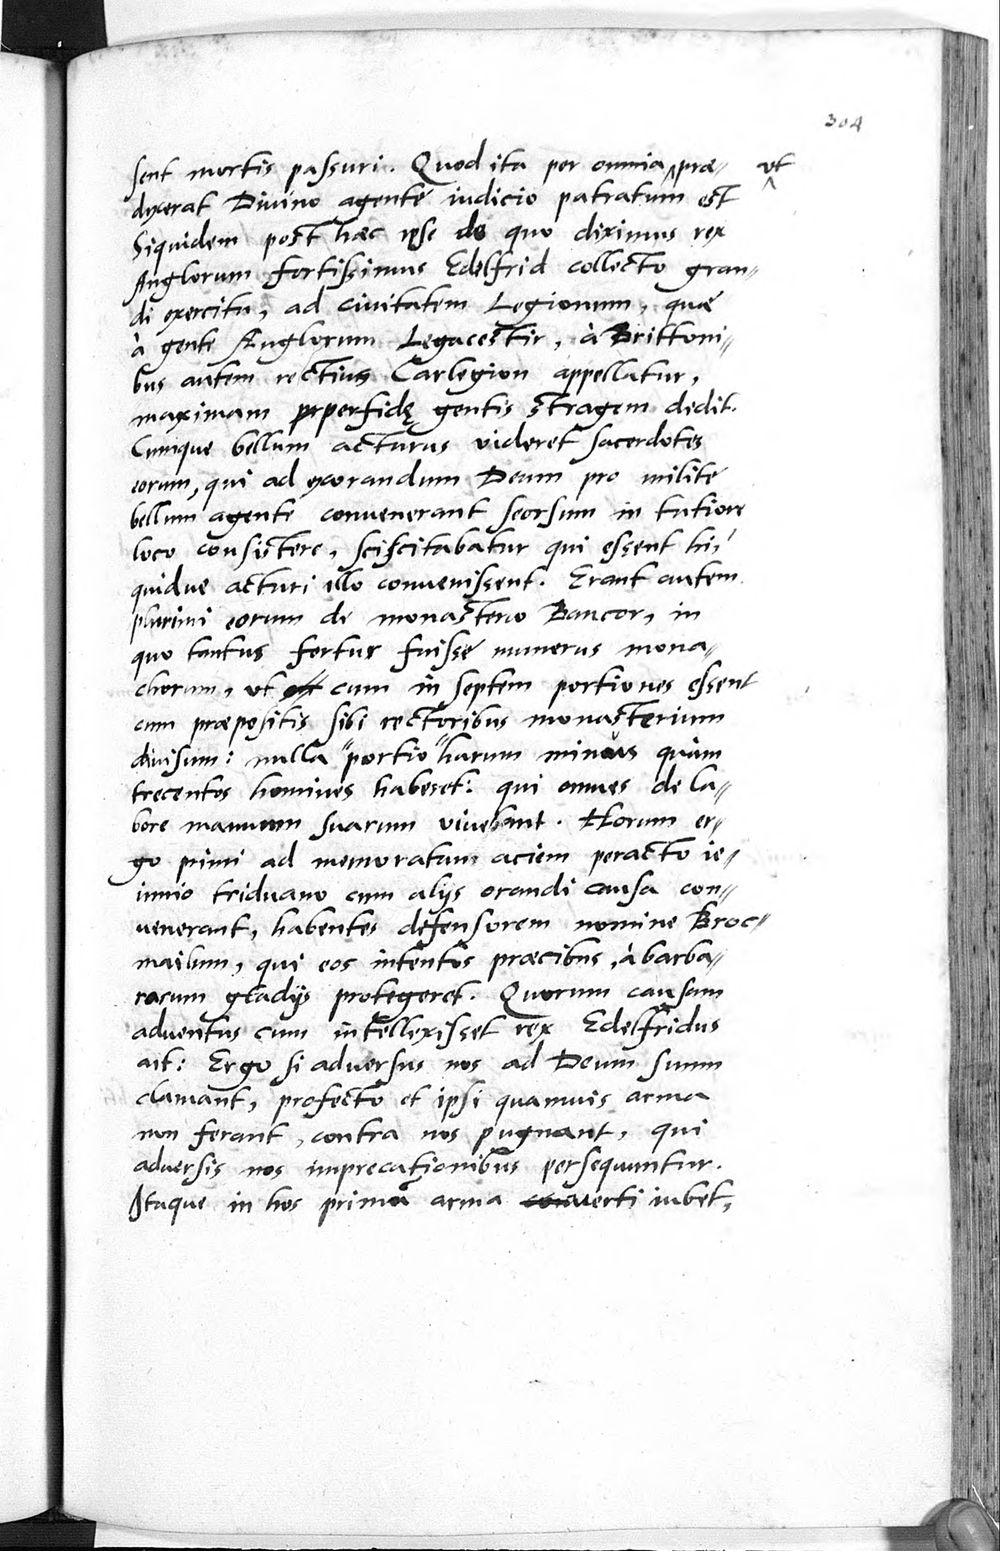 304
sent mortis passuri. Quod ita per omnia ^ præ- ut
dixerat Divino agente iudicio patratum est
Siquidem post hæc ipse de quo diximus rex
Anglorum fortissimus Edelfrid collecto gran-
di exercitu, ad civitatem Legionum, quæ
à gente Anglorum Legacestir, à Brittoni-
bus autem rectius Carlegion appellatur,
maximam perfidę gentis stragem dedit.
Cumque bellum acturus videret sacerdotes
eorum, qui ad exorandum Deum pro milite
bellum agente convenerant seorsum in tutiore
loco consistere, sciscitabatur qui essent hi,
quidve acturi illo convenissent. Erant autem
plurimi eorum de monasterio Bancor, in
quo tantus fertur fuisse numerus mona-
chorum, ut cum in septem portiones essent
cum præpositis sibi rectoribus monasterium
divisum: nulla "portio "harum minus quàm
trecentos homines haberet: qui omnes de la-
bore manuum suarum vivebant. Horum er-
go primi ad memoratam aciem peracto ie-
iunio triduano cum alijs orandi causa con-
venerant, habentes defensorem nomine Broc-
mailum, qui eos intentos præcibus, à barba-
rorum gladijs protegeret. Quorum causam
adventus cum intellexisset rex Edelfridus
ait: Ergo si adversus nos ad Deum suum
clamant, profecto et ipsi quamvis arma
non ferant, contra nos pugnant, qui
adversis nos imprecationibus persequuntur.
Itaque in hos prima arma verti iubet,